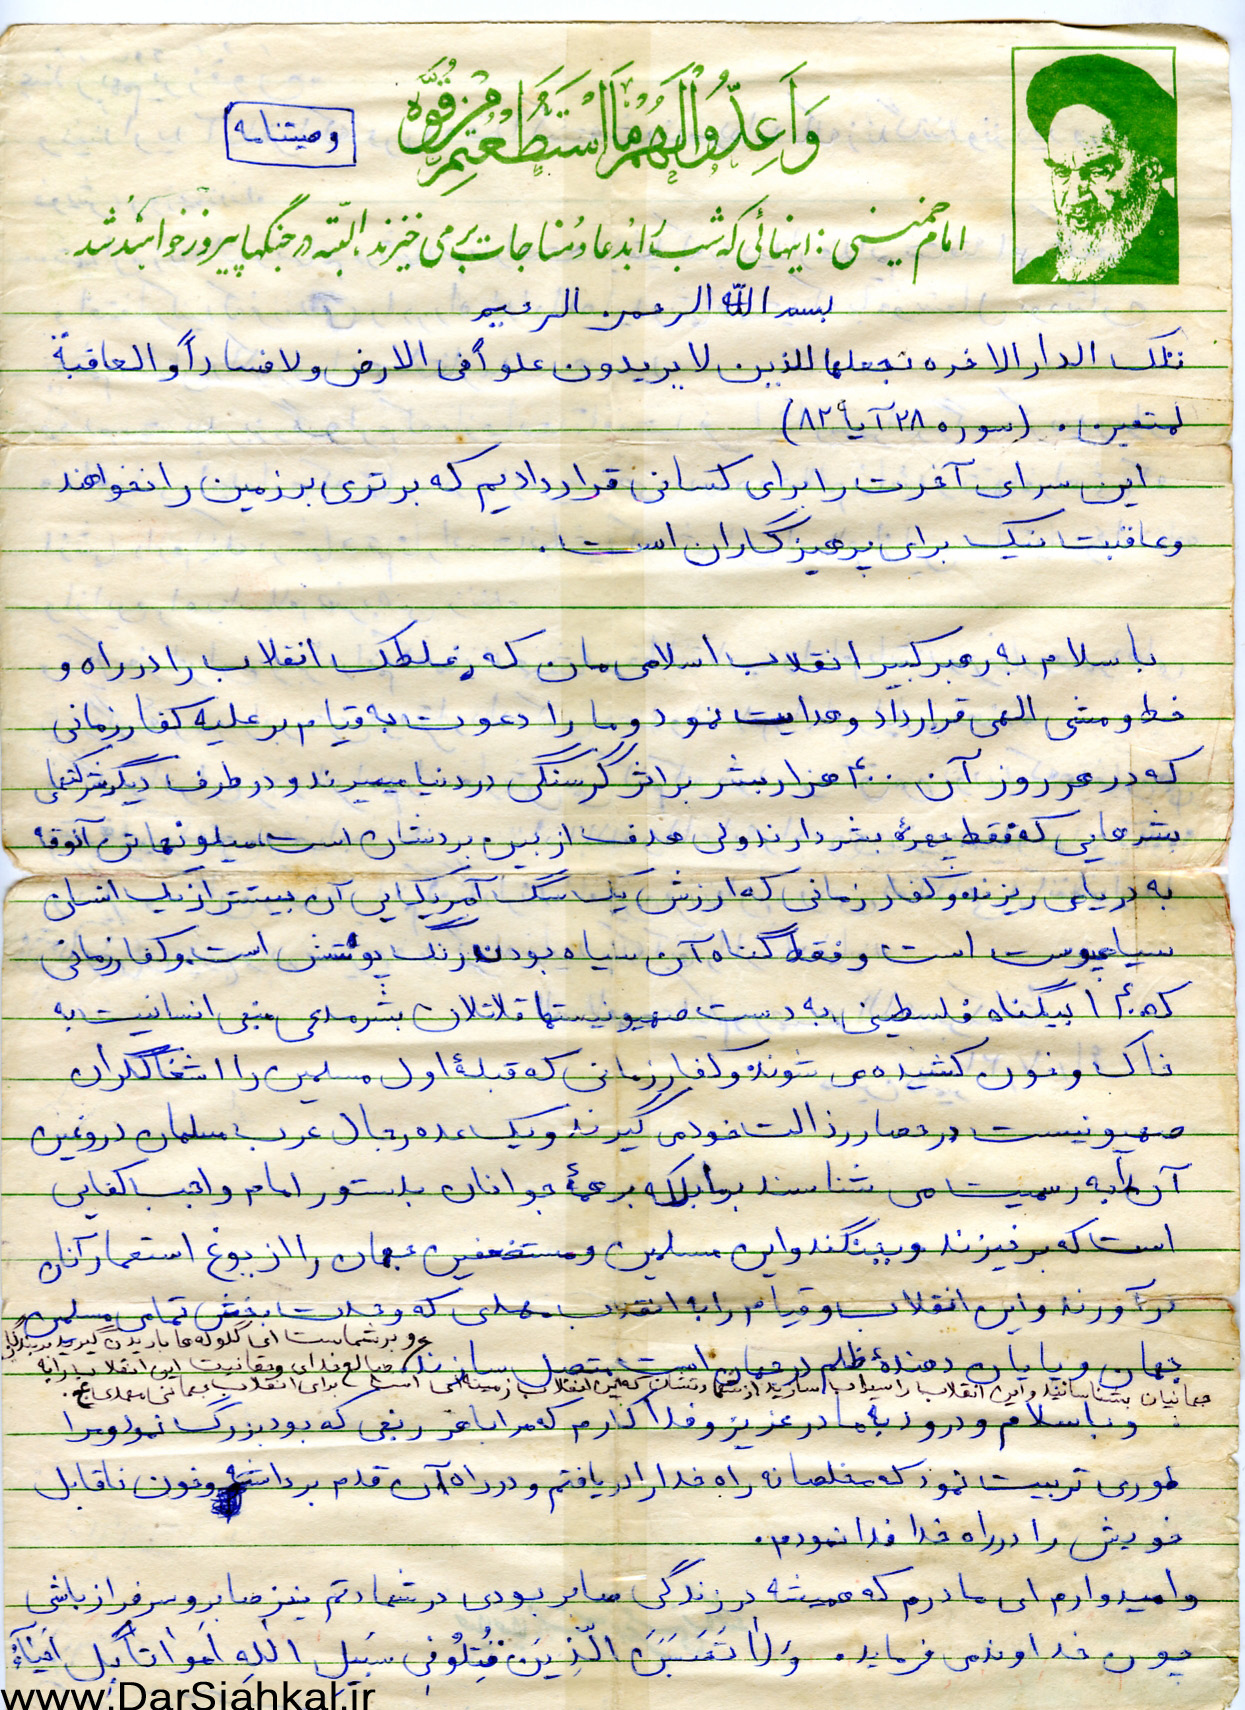 وَاَعِدُّوا لَهُمْ مَا اسْتَطَعْتُمْ مِنْ قُوَّهٍ
وصیتنامه
امام خمینی: اینهائی که شب را بدعا و مناجات برمی خیزند، البته در جنگها پیروز خواهند شد
بسم الله الرحمن الرحیم
تلک الدار الاخره نجعلها للذین لا یریدون علواً فی الارض ولا فساداً و العاقبة
لمتقین. (سوره ۲۸ آیه ۸۲)
این سرای آخرت را برای کسانی قرار دادیم که برتری بر زمین را نخواهند
و عاقبت نیک برای پرهیزگاران است.
با سلام به رهبر کبیر انقلاب اسلامی مان که انقلاب را در راه و
خط و مشی الهی قرار داد و هدایت نمود و ما را دعوت به قیام بر علیه کفار زمانی
که در هر روز آن ۴۰۰ هزار بشر بر اثر گرسنگی در دنیا میمیرند و در طرف دیگر
بشرهایی که فقط چهرهٔ بشر دارند ولی هدف از بین بردنشان است میلیونها تن آذوقه
به دریا می ریزند و کفار زمانی که ارزش یک سگ آمریکایی آن بیشتر از یک انسان
سیاهپوست است و فقط گناه آن سیاه بودن رنگ پوستش است. و کفار زمانی
که بیگناه فلسطینی به دست صهیونیستها قاتلان بشر مدعی منجی انسانیت به
خاک و خون کشیده می شوند و کفار زمانی که قبلهٔ اول مسلمین را اشغالگران
صهیونیست در حصار رذالت خود می گیرند و یک عده رجال عرب مسلمان دروغین
آن را به رسمیت می شناسند بر همهٔ جوانان بدستور امام واجب کفایی
است که برخیزند و بجنگند و این مسلمین و مستضعفین جهان را از یوغ استعمارگران
درآورند و این انقلاب و قیام را به انقلاب مهدی که وحدت بخش تمامی مسلمین
و بر شماست ای گلوله ها باریدن گیرید
جهان و پایان دهندهٔ ظلم در جهان است متصل سازند. خدای و حقانیت این انقلاب را به
جهانیان بشناسانید و این انقلاب را سیراب سازید از شهادتتان که این انقلاب زمینه ای است برای انقلاب جهانی مهدی عج.
و با سلام و درود به مادر عزیز و فداکارم که مرا با هر رنجی که بود بزرگ نمود و مرا
طوری تربیت نمود که مخلصانه راه خدا را دریافتم و در راه آن قدم برداشته و خون ناقابل
خویش را در راه خدا فدا نمودم.
و امیدوارم ای مادرم که همیشه در زندگی صابر بودی در شهادتم نیز صابر و سرفراز باشی
چون خداوند می فرماید. وَلا تَحْسَبَنَّ الَّذِینَ قُتِلُو فی سَبیلِ اللهِ اَمْواتاً بَلْ اَحْیآءٌ
www.DarSiahkal.ir